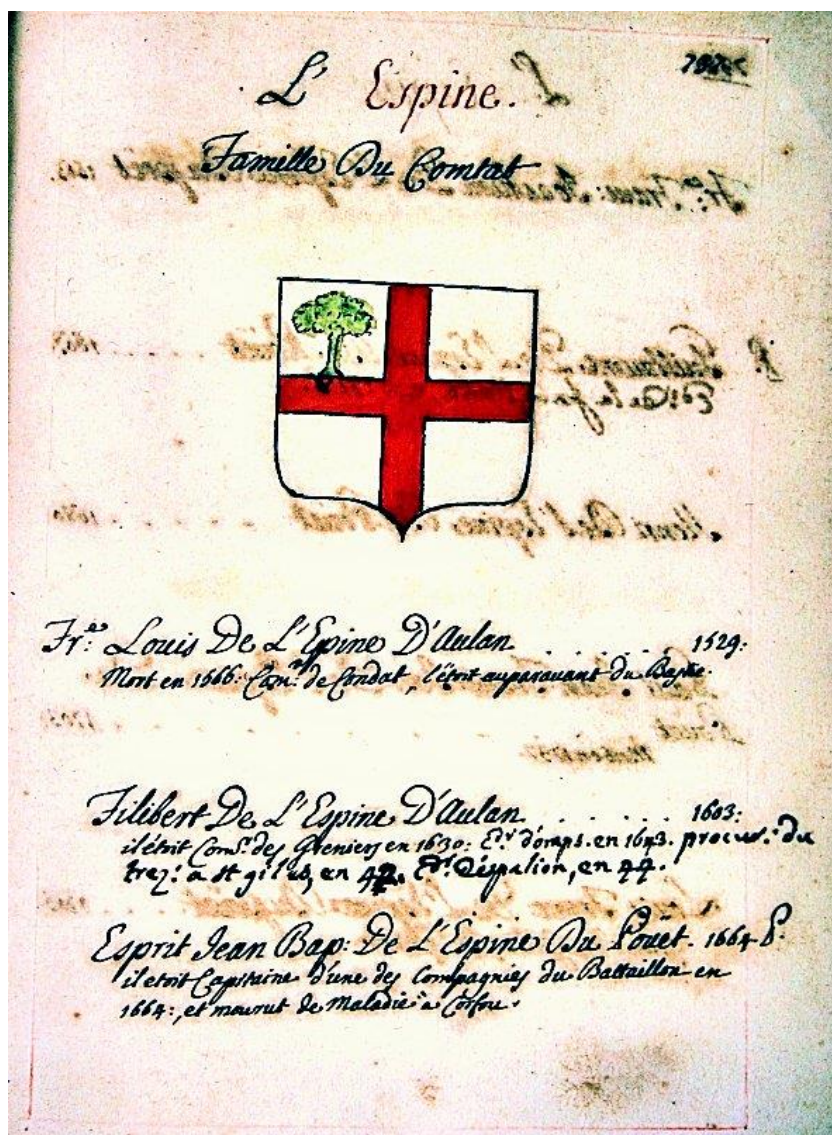 L' Espine.
Famille Du Comtat
Fr.^e Louis De L'Epine D'Aulan . . . . . . 1529:
Mort en 1566. Com.^r de Condat, l'étoit auparavant du Bastit.
Filibert De L'Espine D'Aulan . . . . . . 1603:
il étoit Com.^r des Greniers en 1630: en 1643. procur.^r du
trez.^r a st giles, en 42. en 44.
Esprit Jean Bap: De L'Espine Du Poüet. 1664 P.
il etoit Capitaine d'une des Compagnies du Battaillon en
1664:, et mourut de Maladie a Corfou.